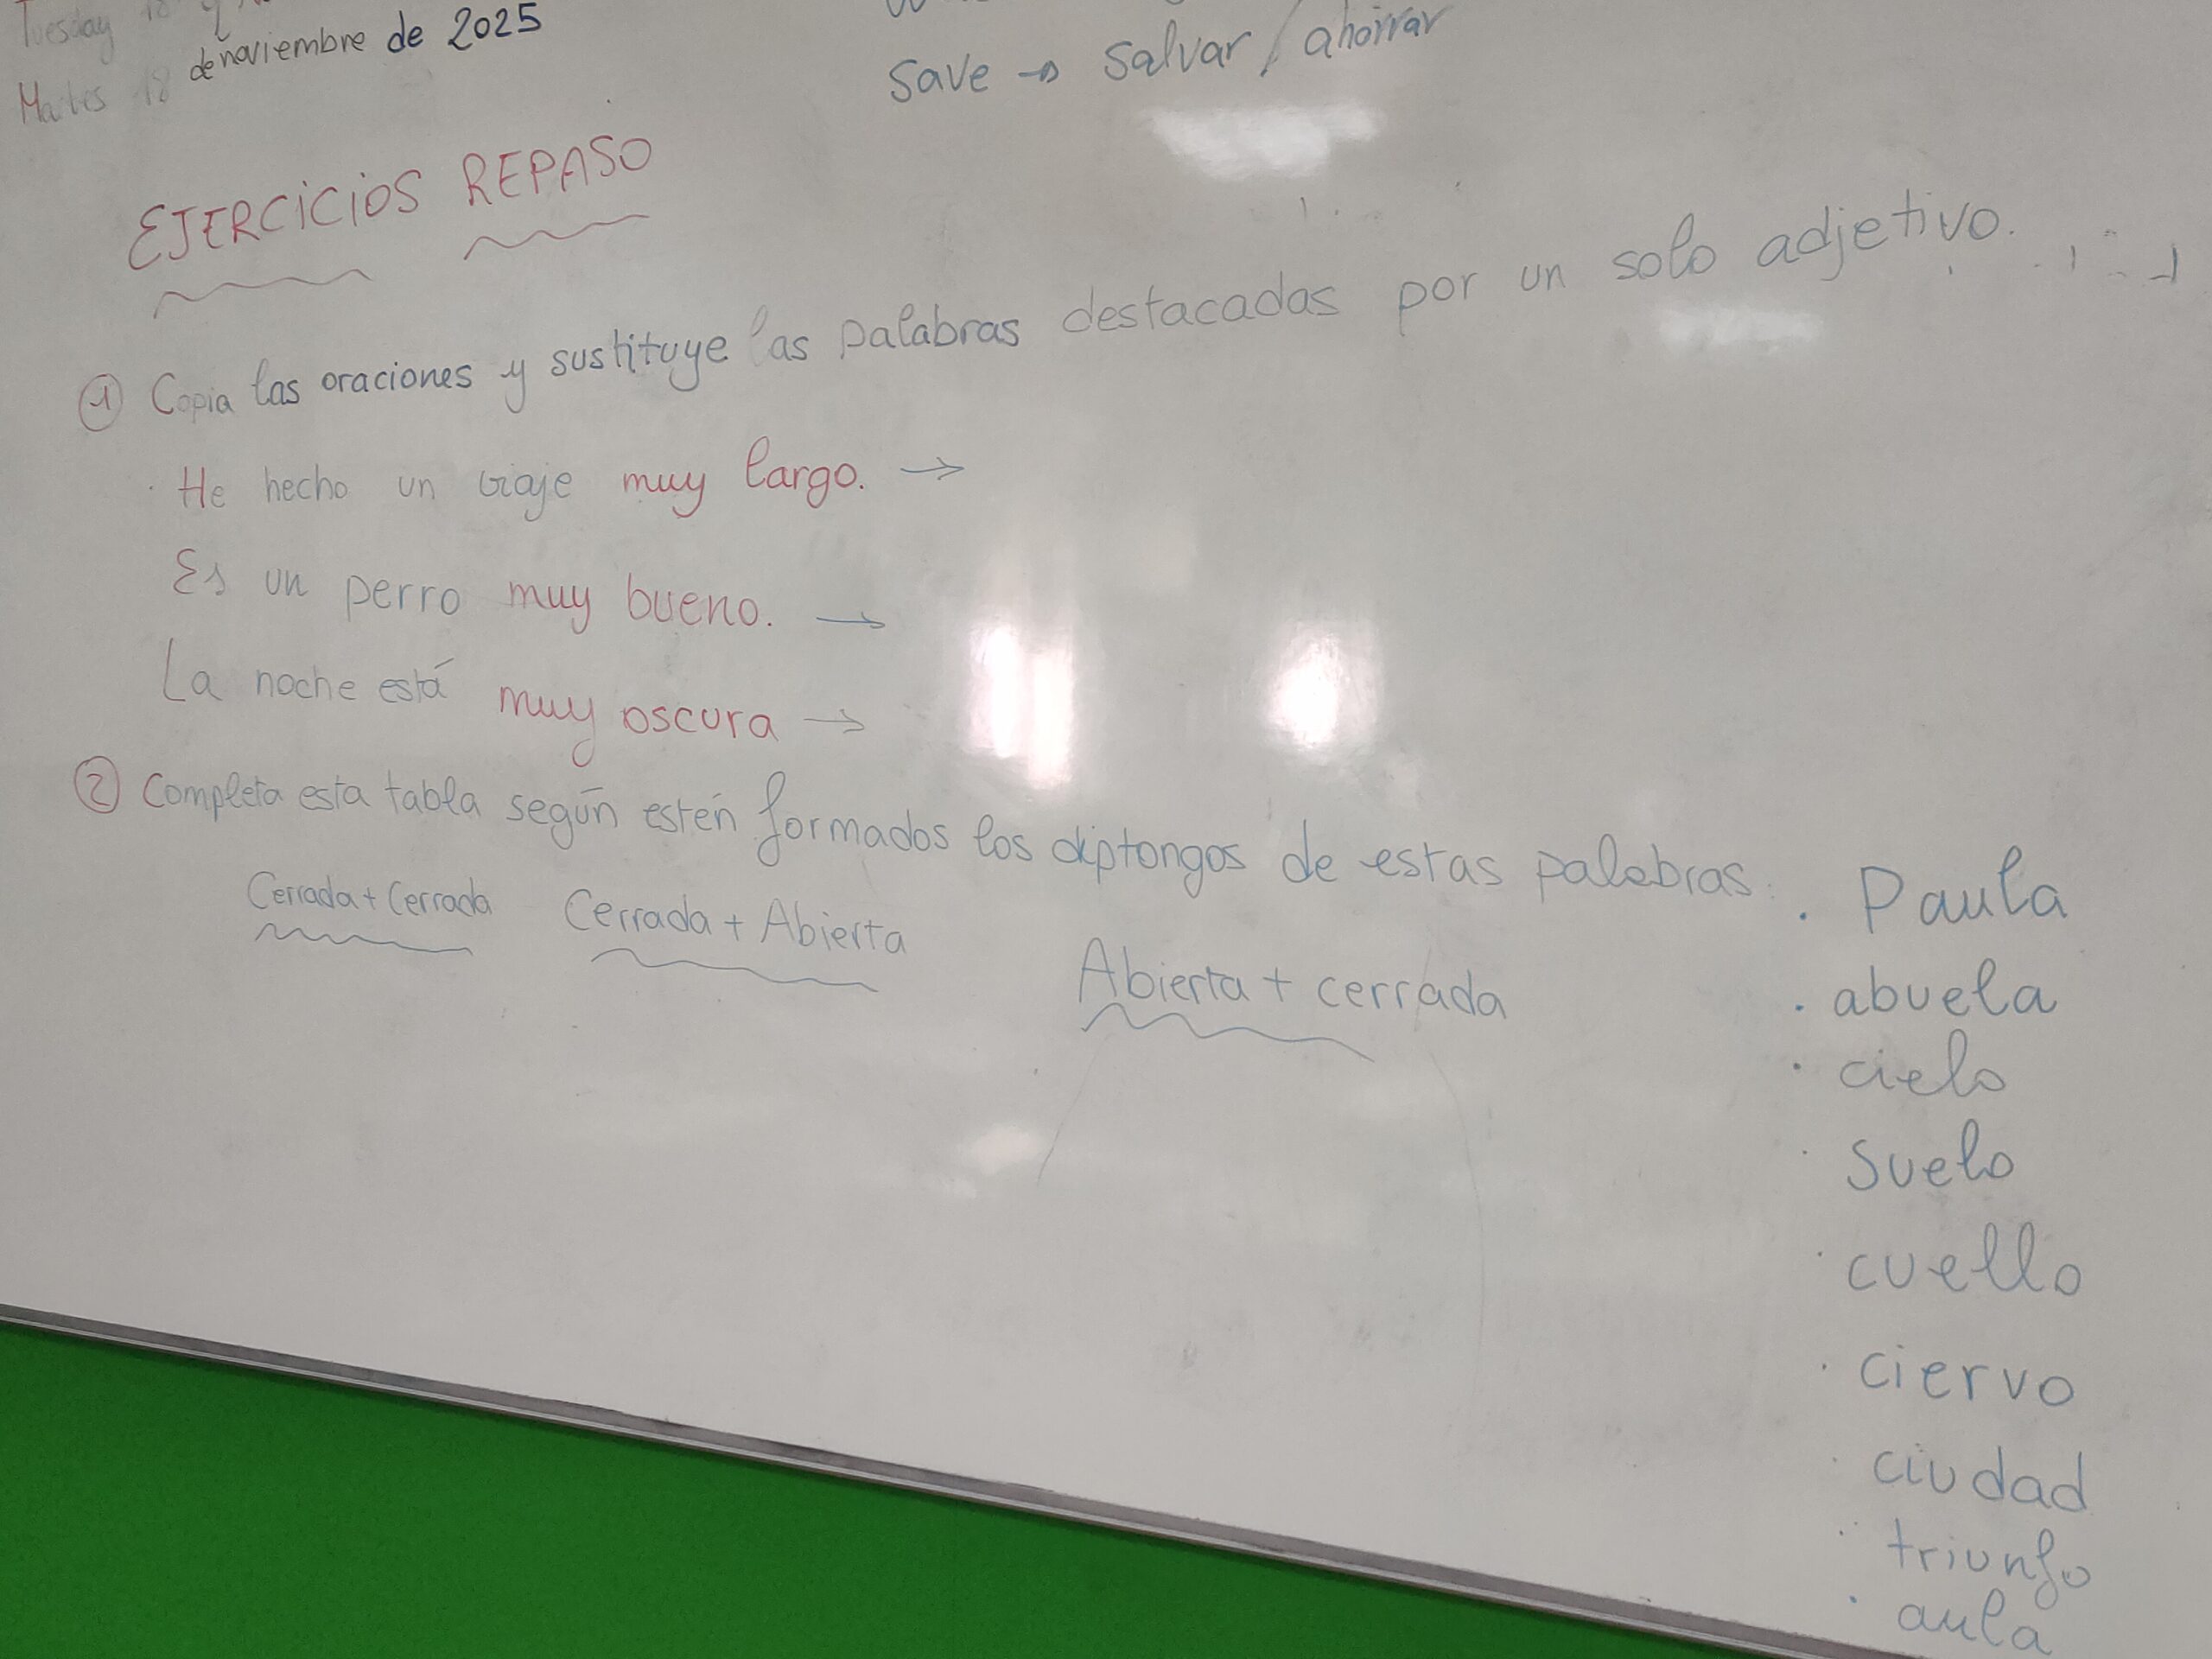 Tuesday 18
Martes 18 de noviembre de 2025
save → salvar / ahorrar
EJERCICIOS REPASO
① Copia las oraciones y sustituye las palabras destacadas por un solo adjetivo.
· He hecho un viaje muy largo. →
Es un perro muy bueno. →
La noche está muy oscura →
② Completa esta tabla según estén formados los diptongos de estas palabras:
Cerrada + Cerrada Cerrada + Abierta Abierta + cerrada
· Paula
· abuela
· cielo
· suelo
· cuello
· ciervo
· ciudad
· triunfo
· aula